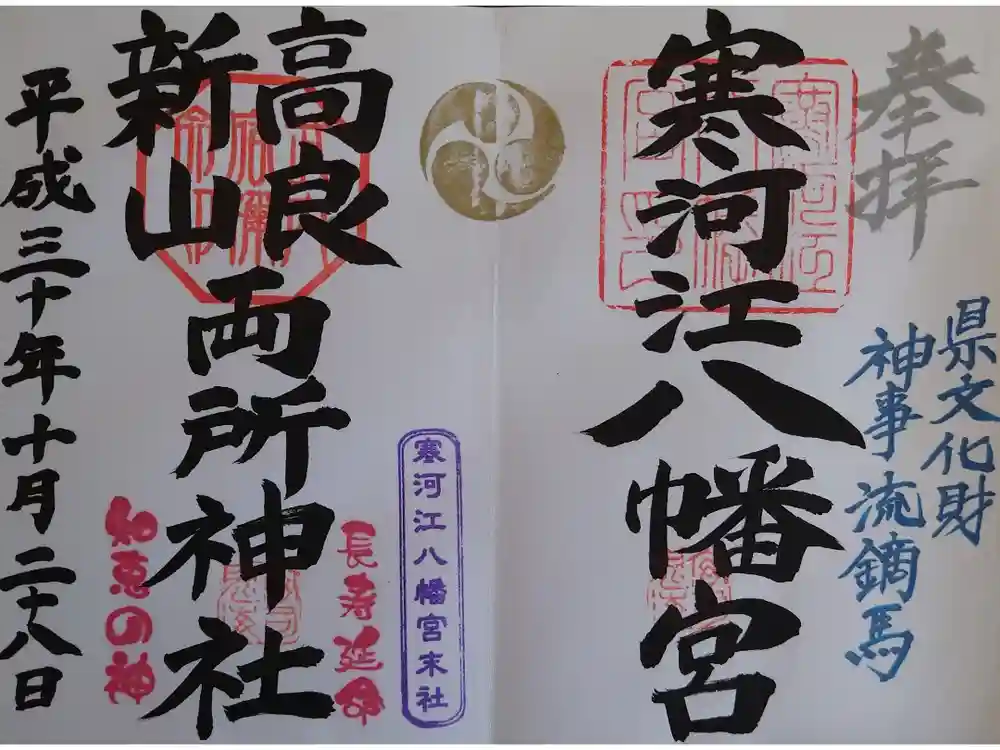 奉拝
県文化財
神事流鏑馬
寒河江八幡宮
寒河江八幡宮末社
長寿延命
高良
新山
両所神社
知恵の神
平成三十年十月二十八日